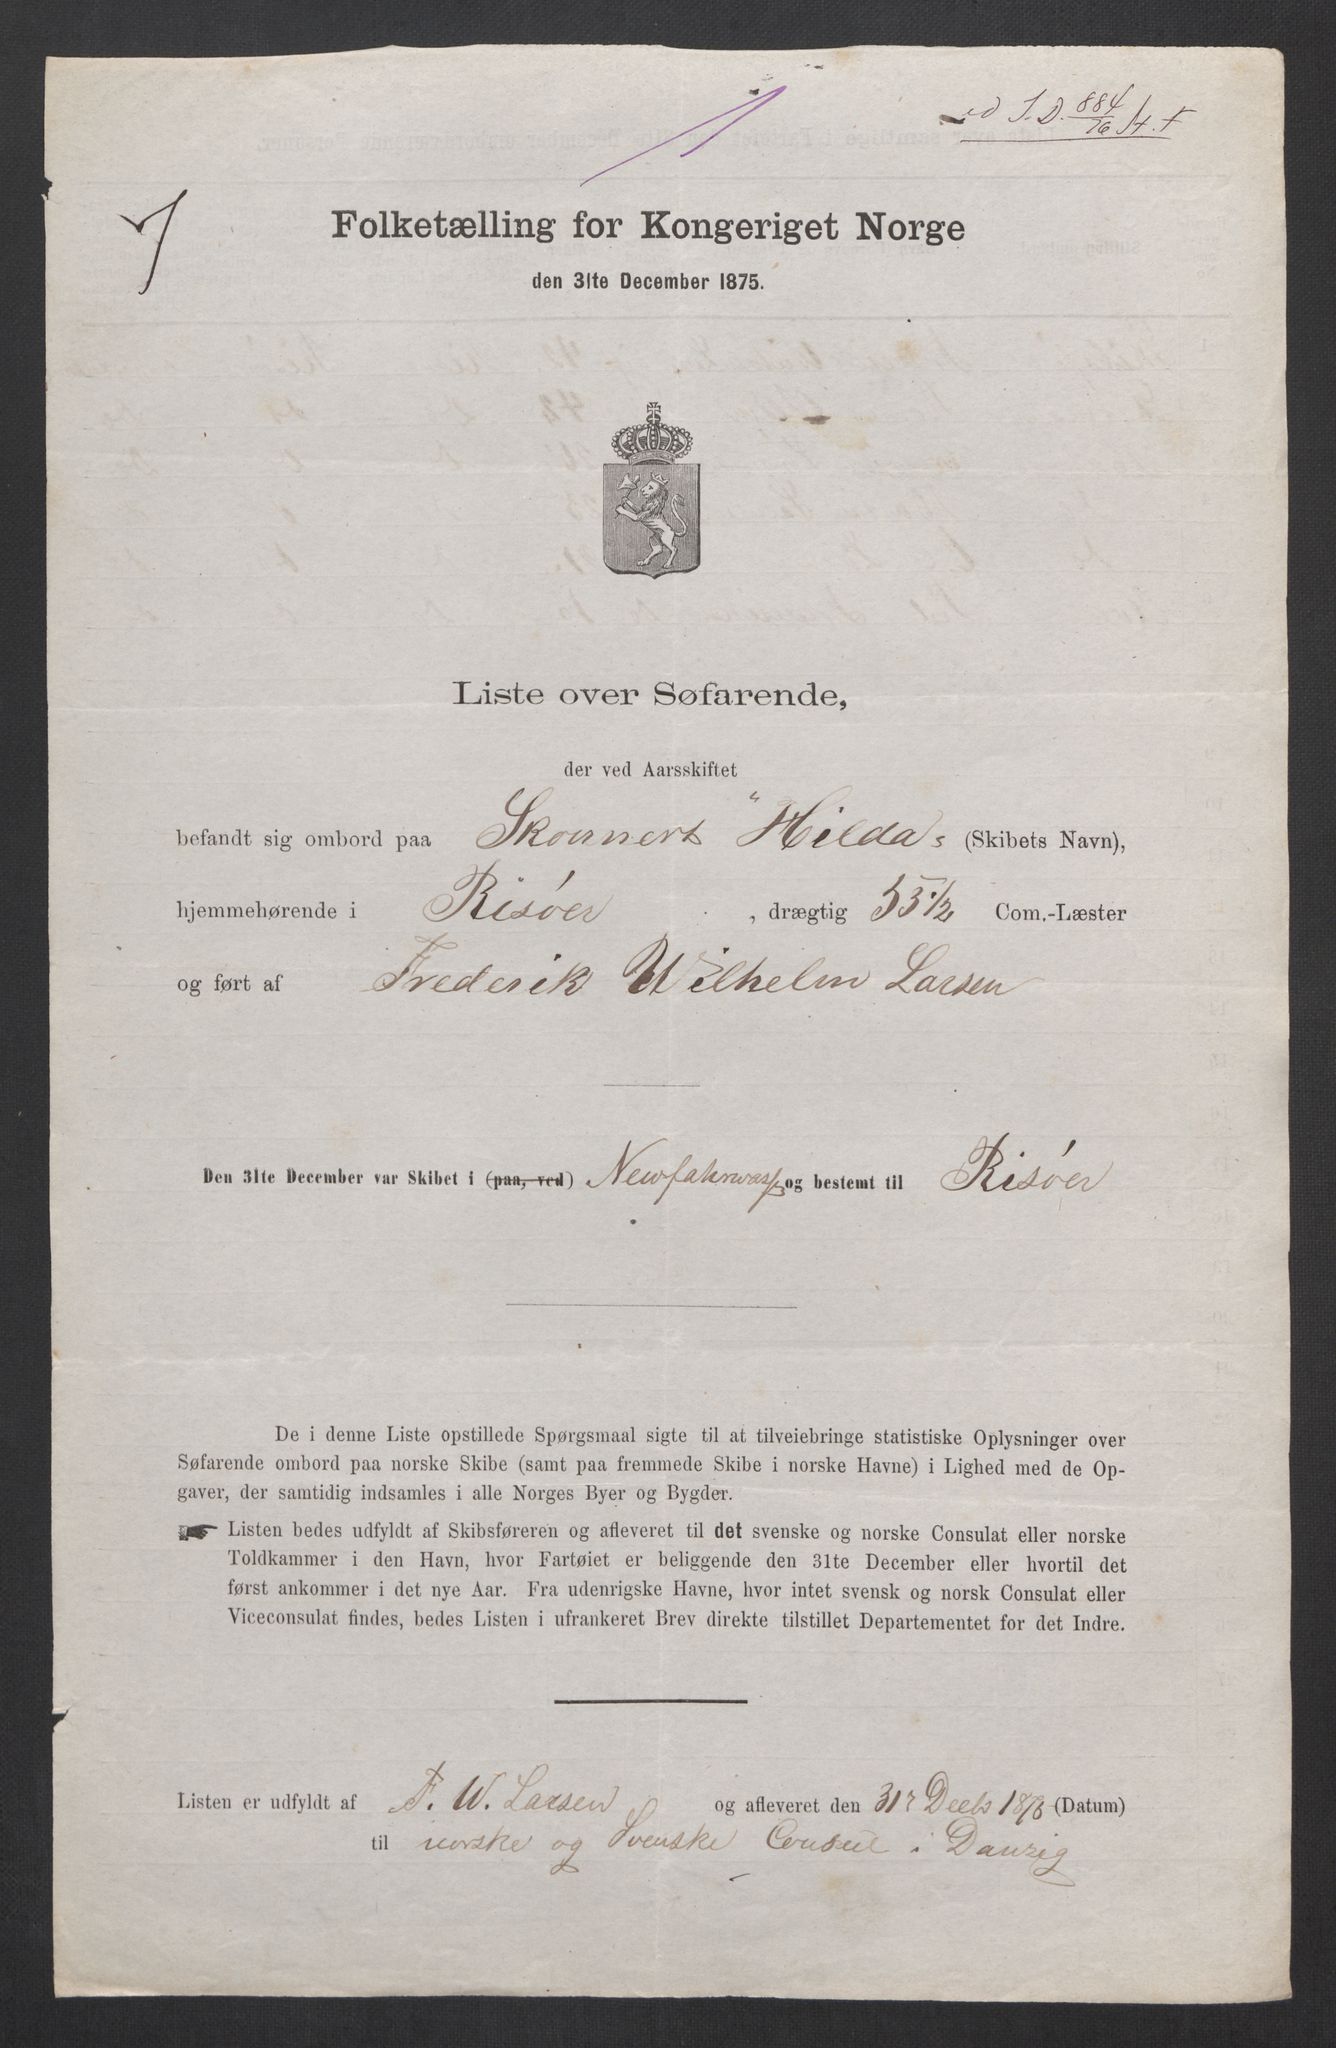 I. D. 884/76 A. F
1
7
Folketælling for Kongeriget Norge
den 31te December 1875.
Liste over Søfarende,
der ved Aarsskiftet
befandt sig ombord paa Skonnert "Hilda" (Skibets Navn),
hjemmehørende i Risøer , drægtig 55 1/2 Com.-Læster
og ført af Frederik Wilhelm Larsen
Den 31te December var Skibet i (paa, ved) Newfahrwass og bestemt til Risøer
De i denne Liste opstillede Spørgsmaal sigte til at tilveiebringe statistiske Oplysninger over
Søfarende ombord paa norske Skibe (samt paa fremmede Skibe i norske Havne) i Lighed med de Op-
gaver, der samtidig indsamles i alle Norges Byer og Bygder.
Listen bedes udfyldt af Skibsføreren og afleveret til det svenske og norske Consulat eller norske
Toldkammer i den Havn, hvor Fartøiet er beliggende den 31te December eller hvortil det
først ankommer i det nye Aar. Fra udenrigske Havne, hvor intet svensk og norsk Consulat eller
Viceconsulat findes, bedes Listen i ufrankeret Brev direkte tilstillet Departementet for det Indre.
Listen er udfyldt af F. W. Larsen og afleveret den 31 Decb (Datum)
til norske og Svenske Consul i Danzig